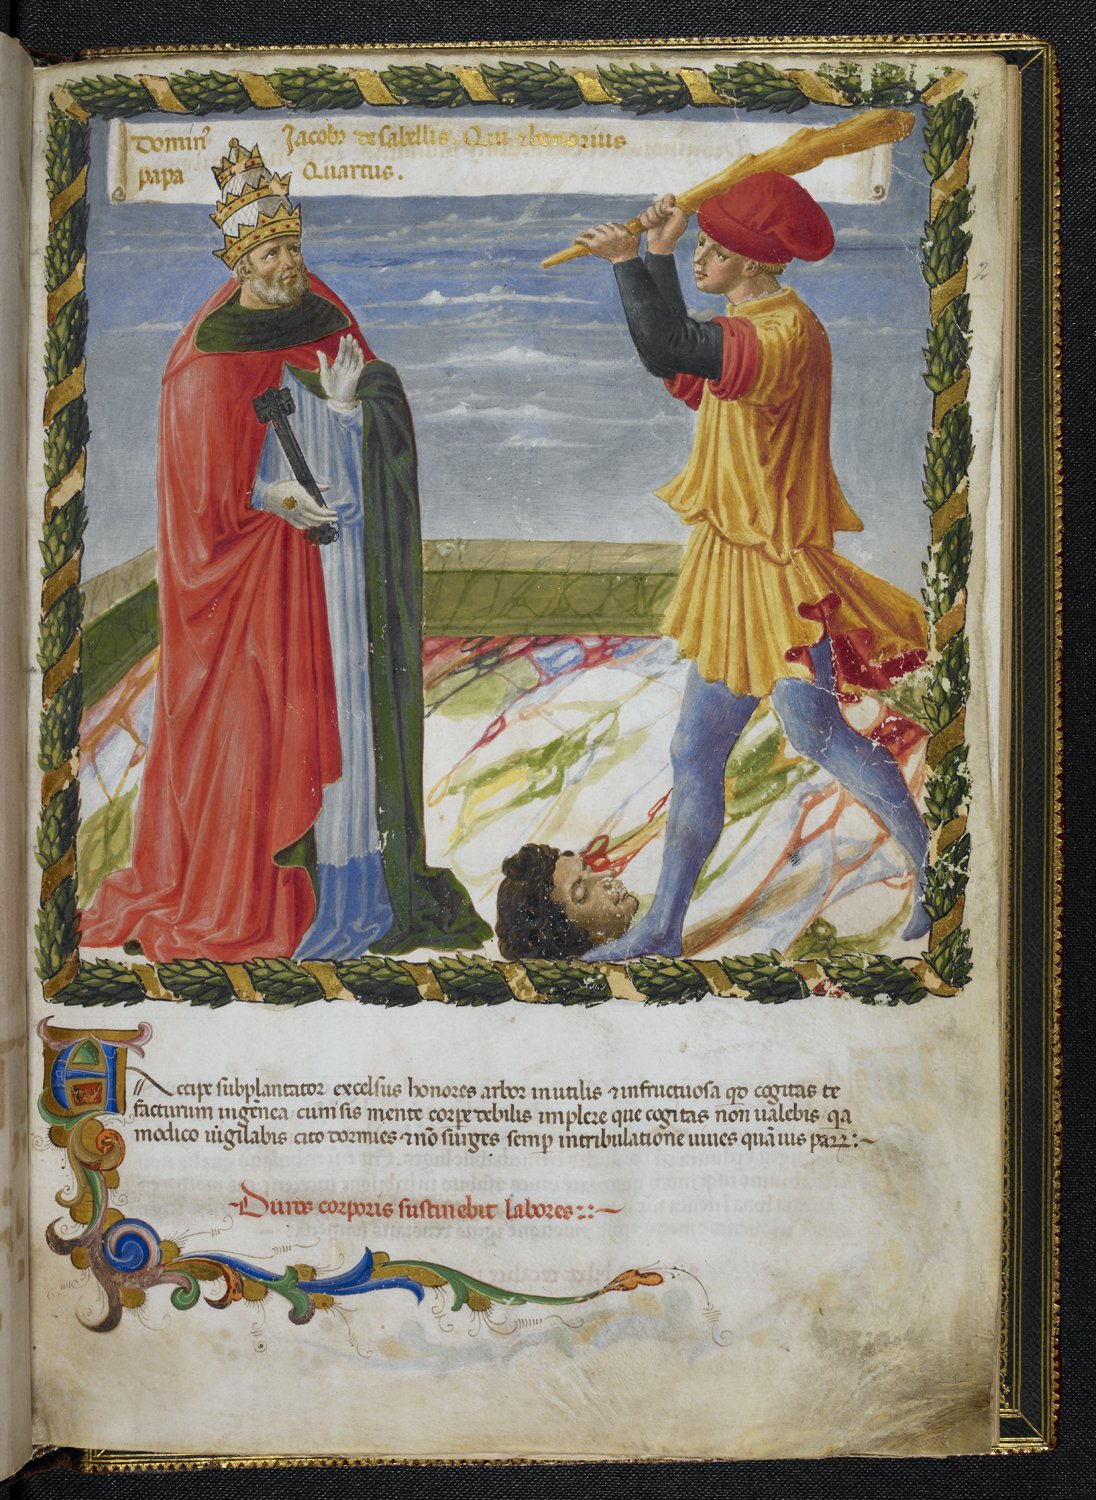 Dominꝰ Jacobꝰ de sabellis. Qui ⁊ honorius
papa Quartus.
2
Accipe subplantator excelsus honores arbor inutilis ⁊ infructuosa qd cogitas te
facturum ingenea cum sis mente corpe debilis implere que cogitas non ualebis qa
modico uigilabis cito dormies ⁊ nō surges semp in tribulatione uiues quāuis paꝝ:~
Duros corporis sustinebit labores::~